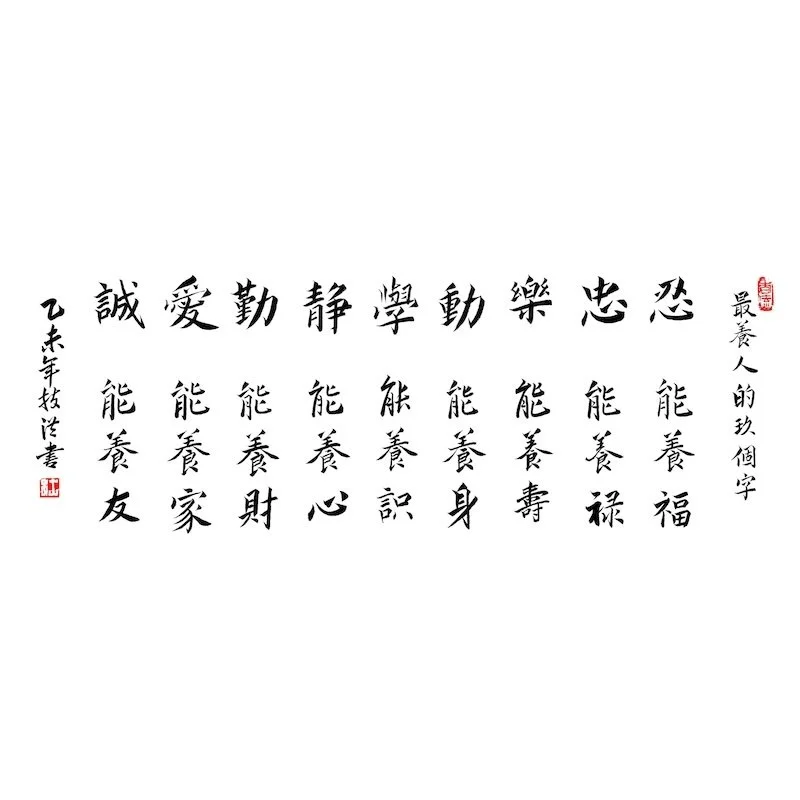 最養人的玖個字
忍能養福
忠能養禄
樂能養壽
動能養身
學能養識
静能養心
勤能養財
愛能養家
誠能養友
乙未年技洪書